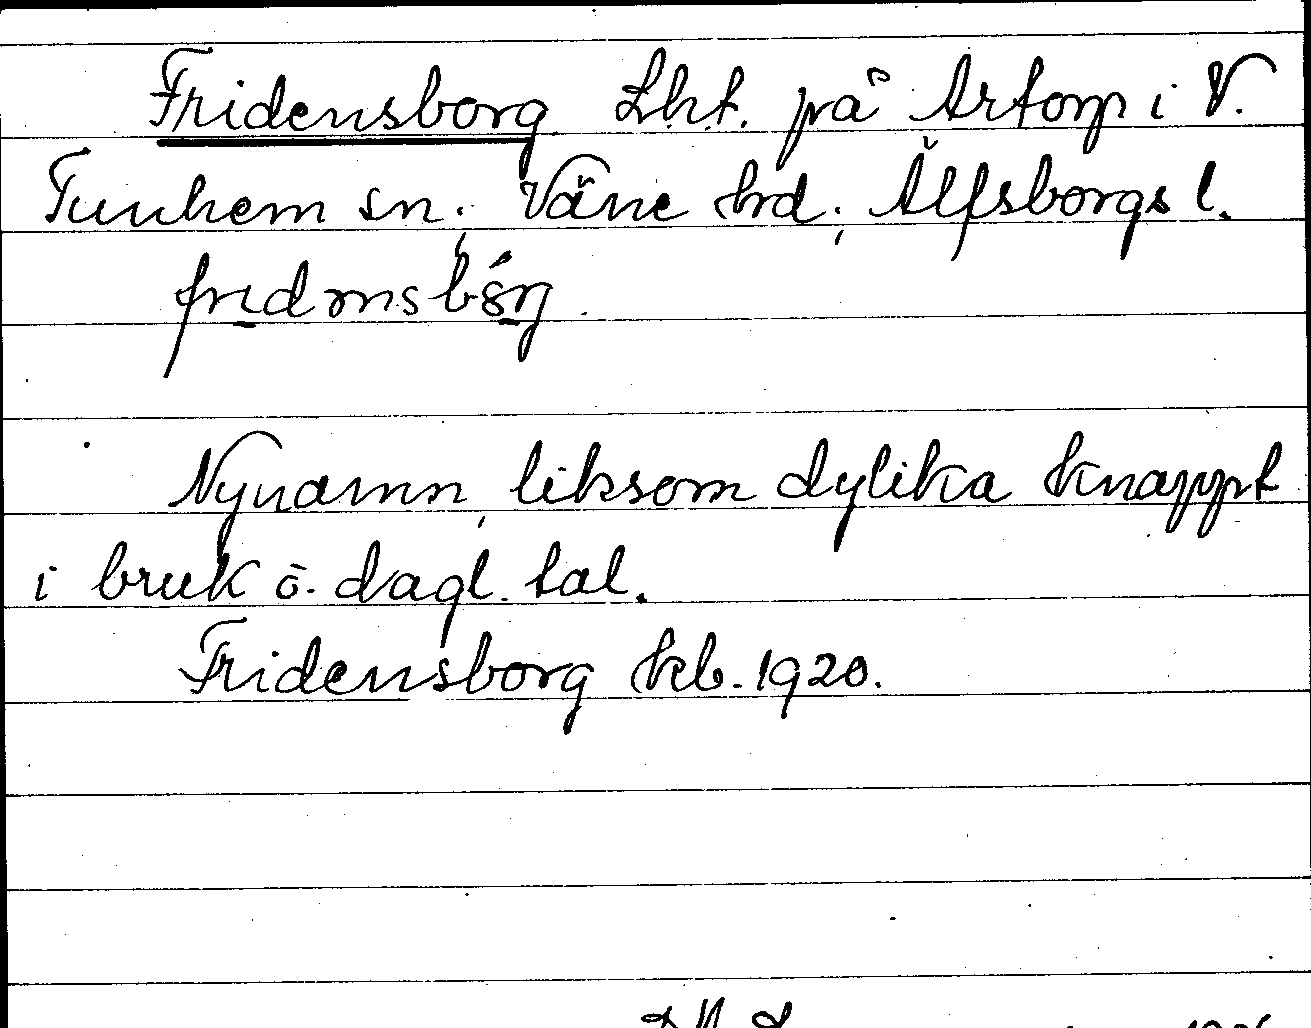 Fridensborg Lht. på Artorp i V.
Tunhem sn, Väne hrd, Älfsborgs l.
Nynamn, liksom dylika knappt
i bruk i dagl. tal.
Fridensborg kb. 1920.